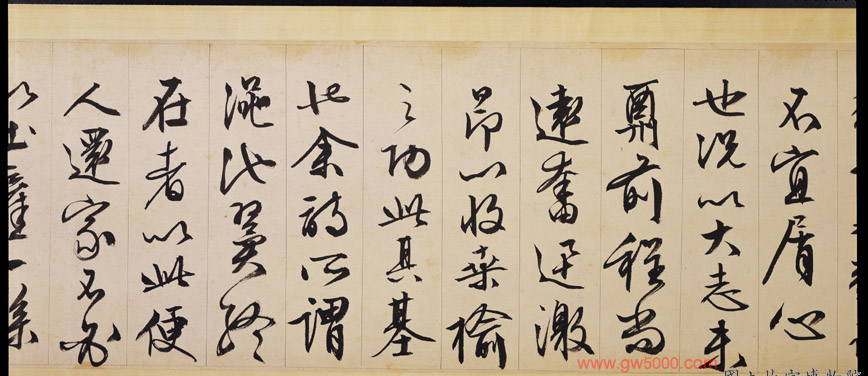 不宜屑心
也況以大志未
酬前程尚
遠奮迅激
昂以收桑榆
之功此其基
也余詩所謂
澠池翼終
在者以此便
人還家不必
www.gw5000.com